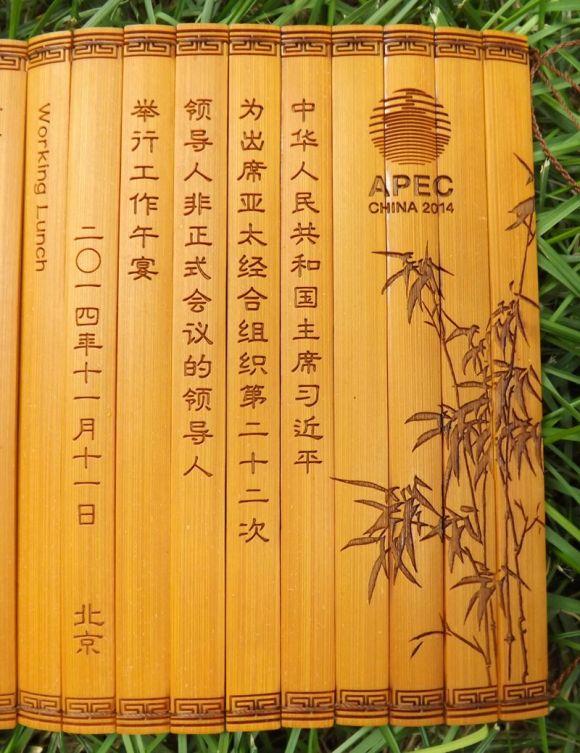 APEC
CHINA 2014
中华人民共和国主席习近平
为出席亚太经合组织第二十二次
领导人非正式会议的领导人
举行工作午宴
二〇一四年十一月十一日 北京
Working Lunch